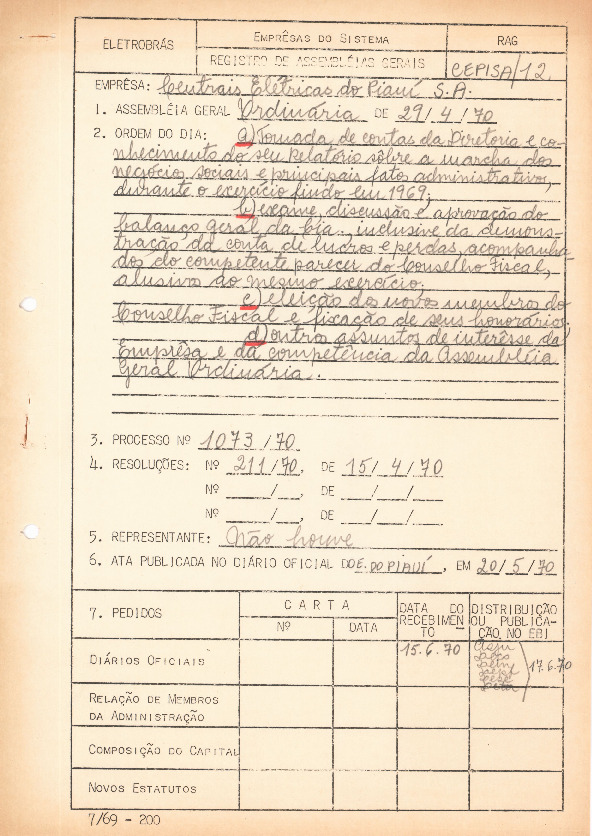 ELETROBRÁS
EMPRÊSAS DO SISTEMA
RAG
REGISTRO DE ASSEMBLÉIAS GERAIS
CEPISA/12.
EMPRÊSA: Centrais Elétricas do Piauí S.A.
1. ASSEMBLÉIA GERAL Ordinária DE 29/4/70
2. ORDEM DO DIA: a) Tomada de contas da Diretoria e co-
nhecimento do seu Relatório sôbre a marcha dos
negócios sociais e principais fatos administrativos,
durante o exercício findo em 1969;
b) exame, discussão e aprovação do
balanço geral da Cia., inclusive da demons-
tração da conta de lucros e perdas, acompanha-
dos do competente parecer do Conselho Fiscal,
alusivo ao mesmo exercício;
c) eleição dos novos membros do
Conselho Fiscal e fixação de seus honorários;
d) outros assuntos de interêsse da
Emprêsa e da competência da Assembléia
Geral Ordinária.
3. PROCESSO Nº 1073/70
4. RESOLUÇÕES: Nº 211/70, DE 15/4/70
Nº ____/__, DE __/__/__
Nº ____/__, DE __/__/__
5. REPRESENTANTE: Não houve
6. ATA PUBLICADA NO DIÁRIO OFICIAL DO E. DO PIAUÍ, EM 20/5/70
7. PEDIDOS
CARTA
Nº
DATA
DATA DO
RECEBIMEN
TO
DISTRIBUIÇÃO
OU PUBLICA-
ÇÃO NO EBI
DIÁRIOS OFICIAIS
15.6.70
17.6.70
RELAÇÃO DE MEMBROS
DA ADMINISTRAÇÃO
COMPOSIÇÃO DO CAPITAL
NOVOS ESTATUTOS
7/69 - 200